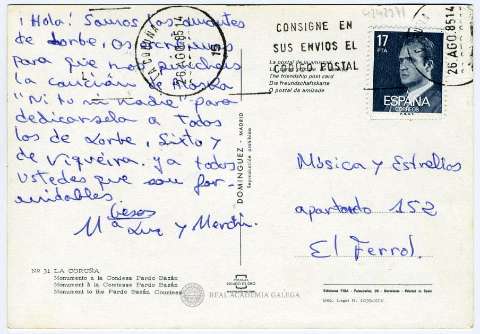 ¡Hola! Somos los amantes
de Lorbe, os escribimos
para que nos pincheis
la canción de Alaska
"Ni tu ni Nadie" para
dedicarsela a todos
los de Lorbe, Sixto y
de Viqueira. ya todos
ustedes que son for-
midables
besos
Mª Luz y Merchi.
LA CORUÑA
26 AGO. 85 14
15
CONSIGNE EN
SUS ENVIOS EL
CODIGO POSTAL
La postal de la amistad
The friendship post card
Die freundschaftskarte
O postal da amizade
17
PTA
ESPAÑA
CORREOS
26 AGO. 85 14
DOMINGUEZ - MADRID
Reproducción prohibida
Música y Estrellas
apartado 152
El Ferrol.
Nº 31 LA CORUÑA
Monumento a la Condesa Pardo Bazán
Monument à la Comtesse Pardo Bazán
Monument to the Pardo Bazán Countess
REAL ACADEMIA GALEGA